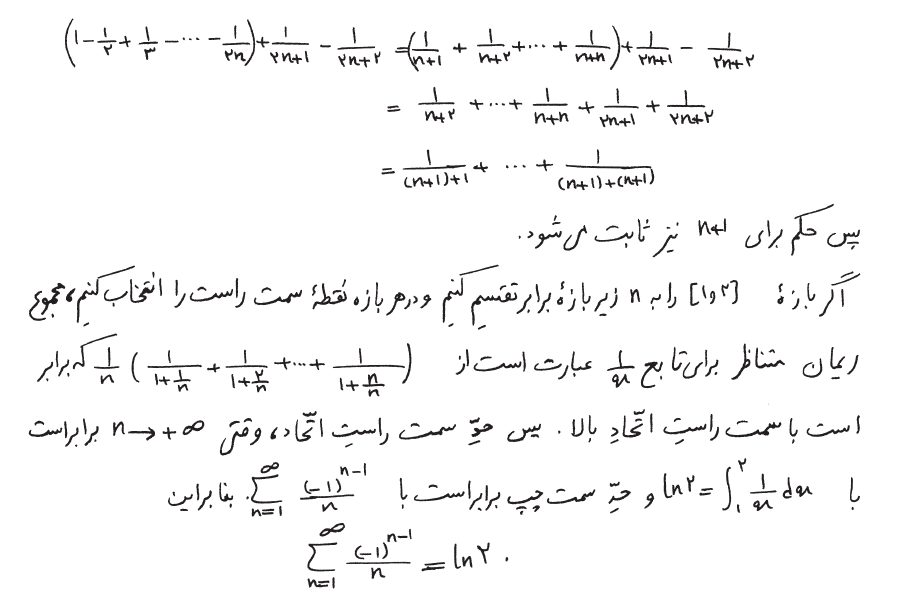 (۱ - ۱/۲ + ۱/۳ - ... - ۱/۲n) + ۱/(۲n+۱) - ۱/(۲n+۲) = (۱/(n+۱) + ۱/(n+۲) + ... + ۱/(n+n)) + ۱/(۲n+۱) - ۱/(۲n+۲)
= ۱/(n+۲) + ... + ۱/(n+n) + ۱/(۲n+۱) + ۱/(۲n+۲)
= ۱/((n+۱)+۱) + ... + ۱/((n+۱)+(n+۱))
پس حکم برای n+۱ نیز ثابت می‌شود.
اگر بازهٔ [۱و۲] را به n زیر بازهٔ برابر تقسیم کنیم و در هر بازه نقطهٔ سمت راست را انتخاب کنیم، مجموع
ریمان متناظر برای تابع ۱/x عبارت است از ۱/n (۱/(۱+۱/n) + ۱/(۱+۲/n) + ... + ۱/(۱+n/n)) که برابر
است با سمت راستِ اتّحادِ بالا. پس حدِّ سمت راستِ اتّحاد، وقتی n → +∞ برابر است
با ln۲ = ∫_۱^۲ ۱/x dx و حدِّ سمت چپ برابر است با ∑_{n=۱}^∞ (-۱)^{n-۱}/n. بنابراین
∑_{n=۱}^∞ (-۱)^{n-۱}/n = ln۲.